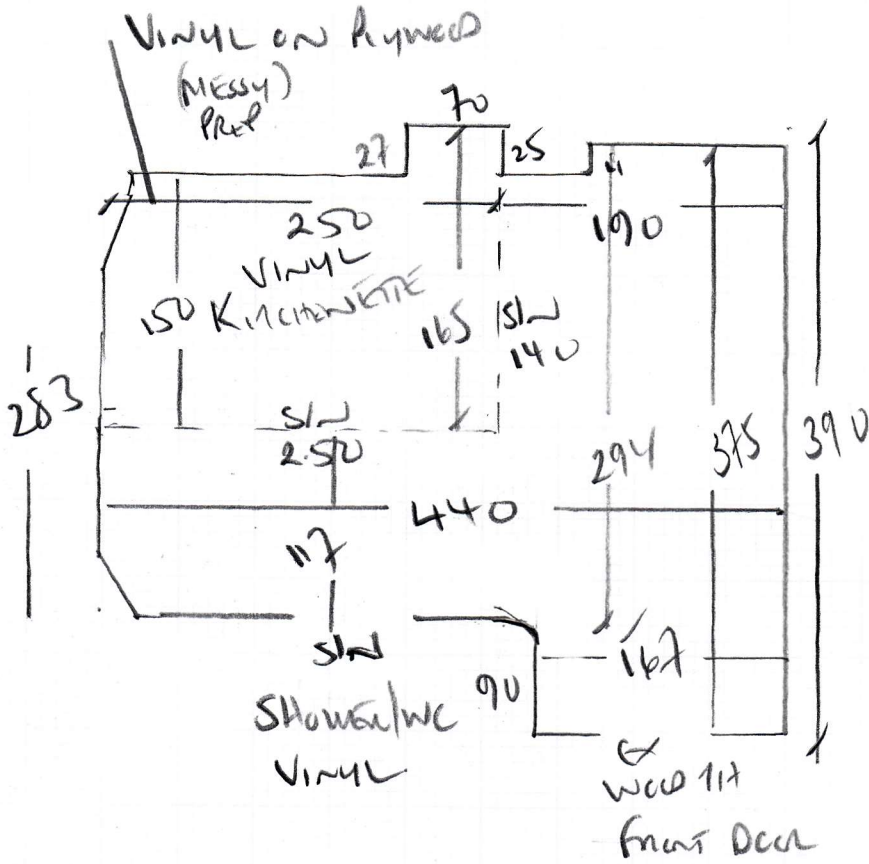 VINYL ON PLYWOOD
(MESSY)
PREP
70
27
25
250
190
VINYL
KITCHENETTE
150
165
S/N
140
283
S/N
2.50
294
375
390
440
117
S/N
167
90
SHOWER/WC
VINYL
EX
FRONT DOOR